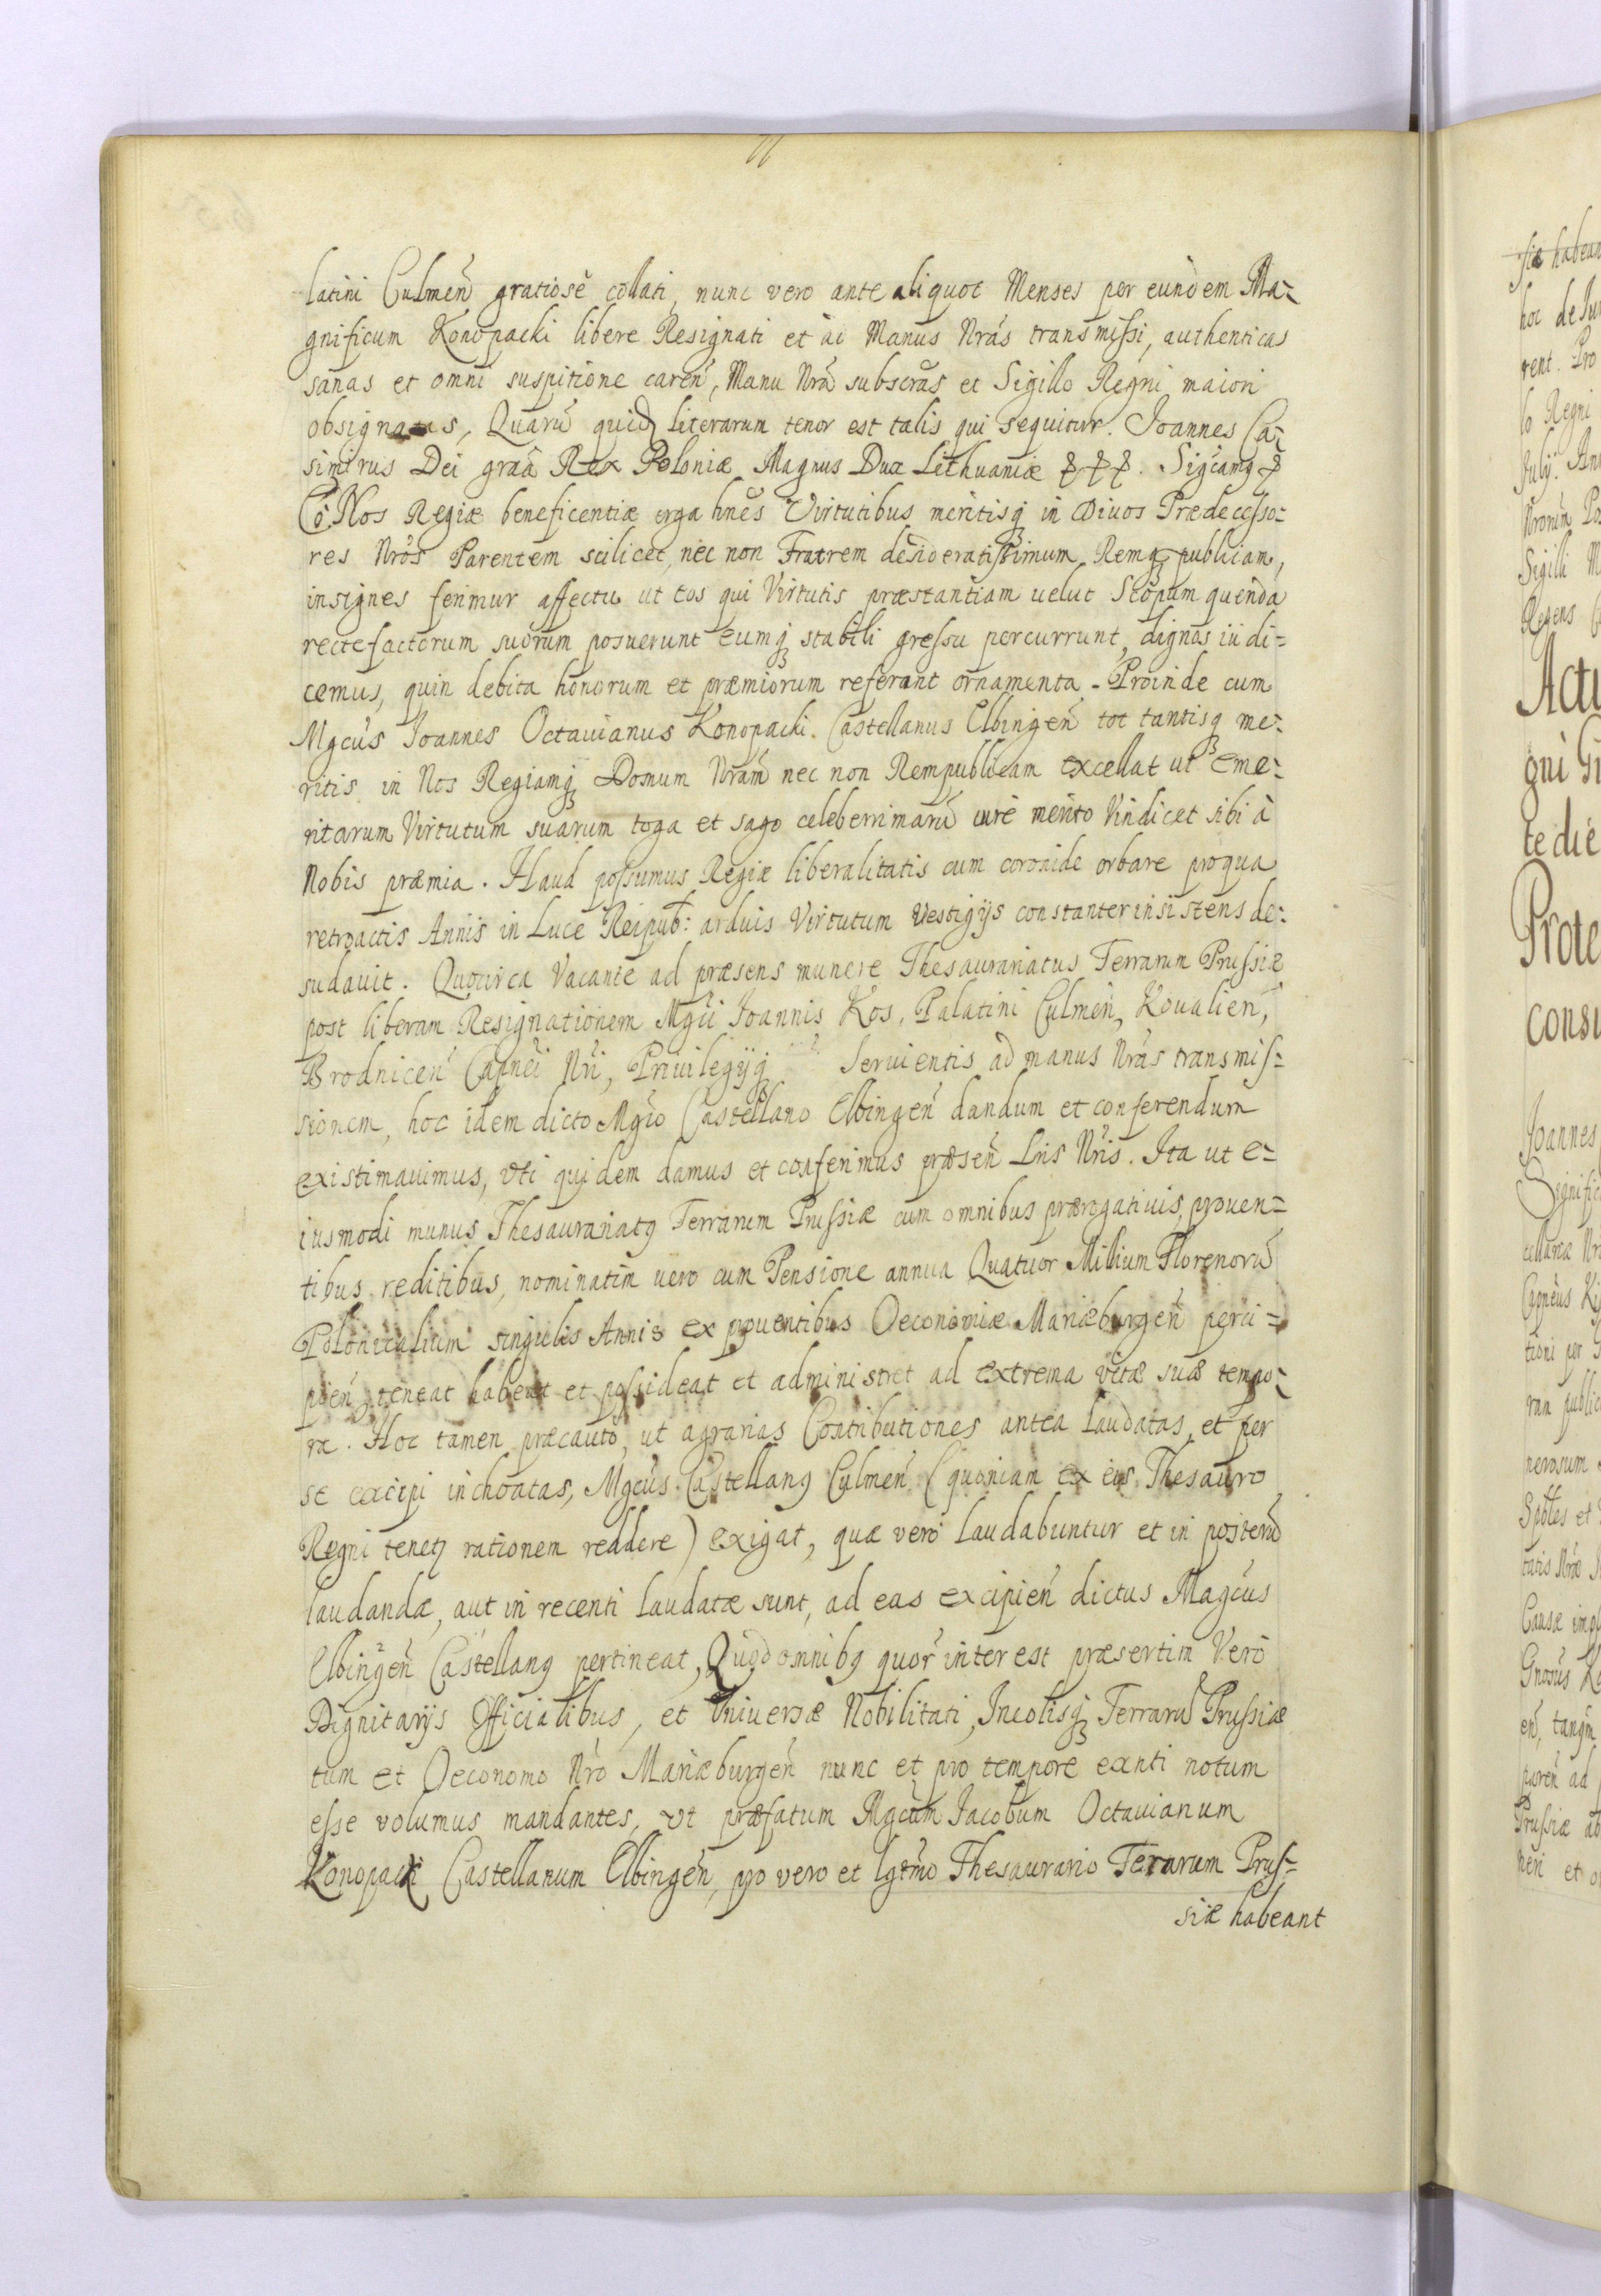 latini Culmen̄ gratiose collati, nunc vero ante aliquot Menses per eundem Ma-
gnificum Konopacki libere Resignati et ad Manus Nr̄as transmissi, authenticas
sanas et omni suspitione caren̄, Manu Nr̄a subscr̄as et Sigillo Regni maiori
obsignatas, Quarū quidē literarum tenor est talis qui sequitur. Joannes Ca-
simirus Dei gra͠a Rex Poloniæ Magnus Dux Lithuaniæ &&&. Sig͠camq &
Nos Regiæ beneficentiæ erga hn͠es Virtutibus meritisq in Divos Prædecesso-
res Nr̄os Parentem scilicet, nec non Fratrem desideratissimum Remq publicam,
insignes ferimur affectu ut eos qui Virtutis præstantiam uelut Scopum quendā
rectefactorum suorum posuerunt eumq stabili gressu percurrunt, dignos iudi-
cemus, quin debita honorum et præmiorum referant ornamenta. Proinde cum
Mgcūs Joannes Octauianus Konopacki Castellanus Elbingen̄ tot tantisq me-
ritis in Nos Regiamq Domum Nr̄am nec non Rempublicam excellat ut eme-
ritarum Virtutum suarum toga et sago celeberrimarū iure merito Vindicet sibi à
Nobis præmia. Haud possumus Regiæ liberalitatis eum coronide orbare pro qua
retroactis Annis in Luce Reipub: arduis Virtutum Vestigijs constanter insistens de-
sudauit. Quocirca Vacante ad præsens munere Thesaurariatus Terrarum Prussiæ
post liberam Resignationem Mgc̄i Joannis Kos, Palatini Culmen̄, Koualien̄,
Brodnicen̄ Capnei Nr̄i, Priuilegijq Seruientis ad manus Nr̄as transmis-
sionem, hoc idem dicto Mgc̄o Castellano Elbingen̄ dandum et conferendum
existimauimus, vti quidem damus et conferimus præsen̄ Lr̄is Nr̄is. Ita ut e-
iusmodi munus Thesaurariatq Terrarum Prussiæ cum omnibus prærogatiuis, prouen-
tibus reditibus, nominatim uero cum Pensione annua Quatuor Millium Florenorū
Polonicalium singulis Annis ex prouentibus Oeconomiæ Mariæburgen̄ perci-
pien̄, teneat habeat et possideat et administret ad extrema vitæ suæ tempo-
ra. Hoc tamen præcauto, ut agrarias Contributiones antea laudatas, et per
se excipi inchoatas, Mgcūs Castellanq Culmen̄ (quoniam ex eis Thesauro
Regni tenetq rationem reddere) exigat, quæ vero laudabuntur et in posterū
laudandæ, aut in recenti laudatæ sunt, ad eas excipien̄ dictus Magcūs
Elbingen̄ Castellanq pertineat, Quod omnibq quor̄ interest præsertim Vero
Dignitarijs Officialibus, et Vniuersæ Nobilitati, Incolisq Terrarū Prussiæ
tum et Oeconomo Nr̄o Mariæburgen̄ nunc et pro tempore exnti notum
esse volumus mandantes, vt præfatum Mgcūm Jacobum Octauianum
Konopacki Castellanum Elbingen̄, pro vero et lgtm̄o Thesaurario Terarum Prus-
siæ habeant